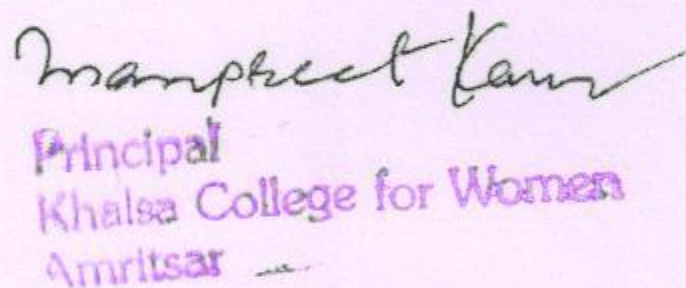 Manpreet Kaur
Principal
Khalsa College for Women
Amritsar